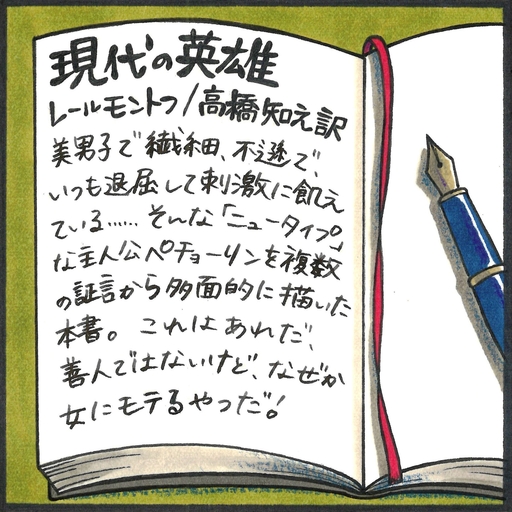 現代の英雄
レールモントフ/高橋知之訳
美男子で繊細、不遜で、
いつも退屈して刺激に飢え
ている……そんな「ニュータイプ」
な主人公ペチョーリンを複数
の証言から多面的に描いた
本書。これはあれだ、
善人ではないけど、なぜか
女にモテるやつだ!